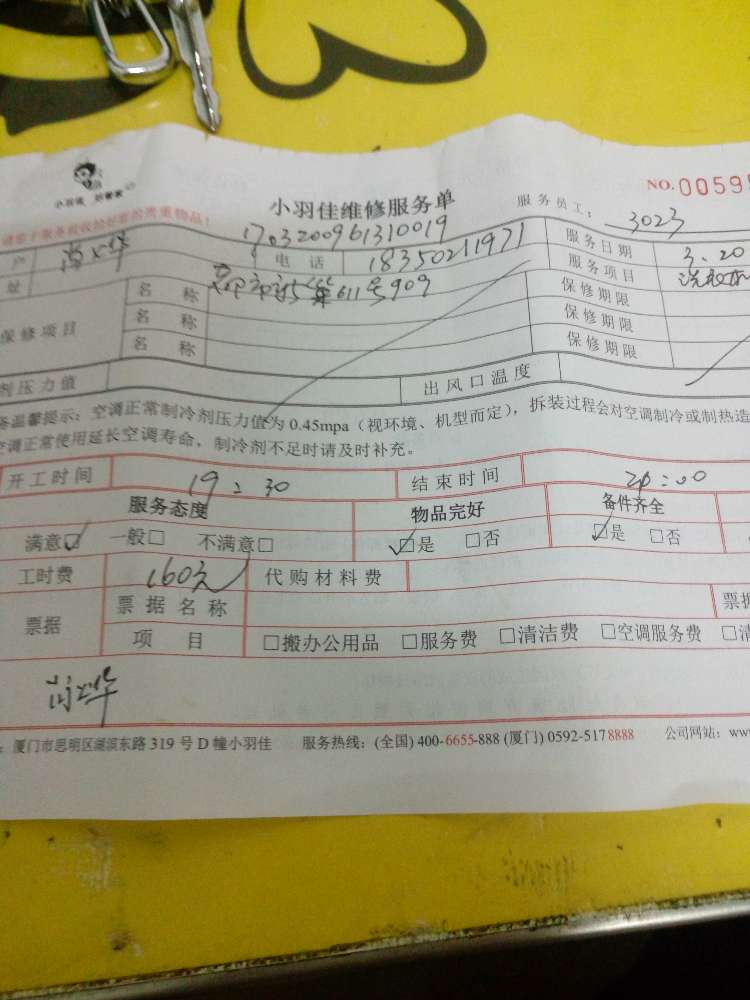 小羽佳 好管家
NO. 00595
小羽佳维修服务单
服务员工： 3023
请您于服务前收拾好您的贵重物品！
1703200961310019
户 电 话 18350211971 服务日期 3.20
址 611号909 服务项目 洗衣机
保修项目 名 称 保修期限
名 称 保修期限
名 称 保修期限
剂压力值 出风口温度
备温馨提示：空调正常制冷剂压力值为 0.45mpa（视环境、机型而定），拆装过程会对空调制冷或制热造
空调正常使用延长空调寿命，制冷剂不足时请及时补充。
开工时间 19：30 结束时间 20：00
服务态度 物品完好 备件齐全
满意☑ 一般☐ 不满意☐ ☑是 ☐否 ☑是 ☐否
工时费 160元 代购材料费
票据 票据名称 票据
项 目 ☐搬办公用品 ☐服务费 ☐清洁费 ☐空调服务费 ☐清
：厦门市思明区湖滨东路 319 号 D 幢小羽佳 服务热线：(全国) 400-6655-888 (厦门) 0592-5178888 公司网站：www